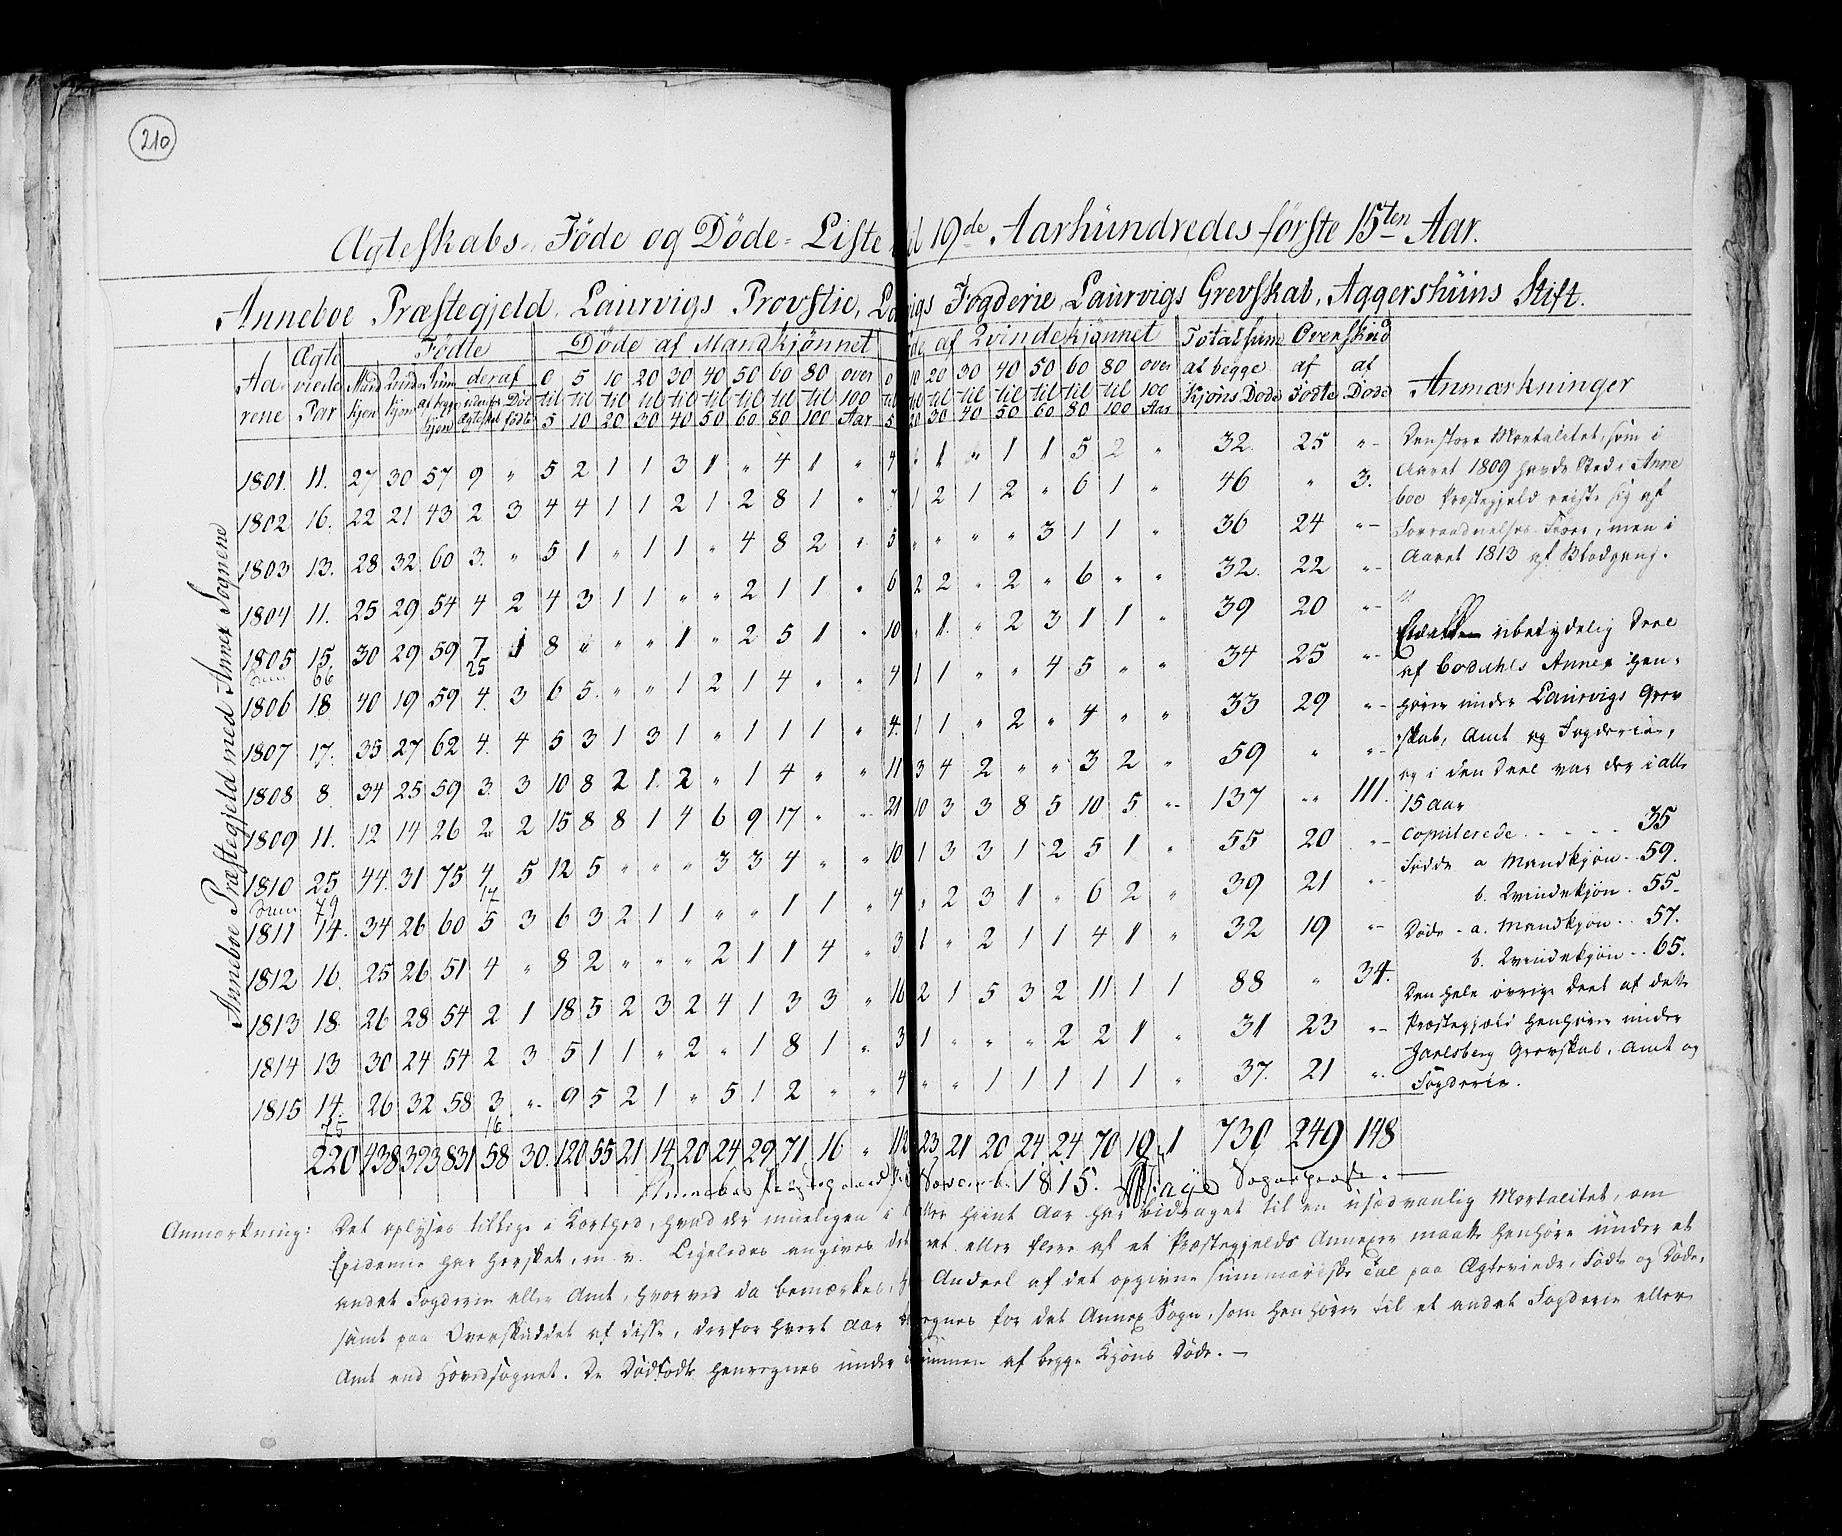 210
Ægteskabs- Föde og Döde-Liste 19de Aarhündredes förste 15ten Aar.
Anneboe Præstegjeld, Laurvigs Provstie, Fogderie, Laurvigs Grevskab, Aggershüüs Stift.
Anneboe Præstegjeld med Annex Sognene
Aarene Ægteviede Par Födte Döde af Mandkjönnet af Qvindekjönnet Totalsum Overskud
Mand kjön Qvinde kjön Sum af begge kjön deraf uden Ægteskab Död födte
0 til 5 5 til 10 10 til 20 20 til 30 30 til 40 40 til 50 50 til 60 60 til 80 80 til 100 over 100 Aar 0 til 5
20 til 30 30 til 40 40 til 50 50 til 60 60 til 80 80 til 100 over 100 Aar af begge Kjöns Döde af Födte af Döde Anmærkninger
1801. 11. 27 30 57 9 " 5 2 1 1 3 1 " 4 1 " 4 1 " 1 1 5 2 " 32. 25 "
1802 16. 22 21 43 2 3 4 4 1 1 2 1 2 8 1 " 7 1 2 1 2 " 6 1 " 46 " 3.
1803 13. 28 32 60 3. " 5 1 " 1 1 " 4 8 2 " 5 " " " " 3 1 1 " 36 24 "
1804 11. 25 29 54 4 2 4 3 1 1 " " 2 1 1 " 6 2 2 " 2 " 6 " " 32. 22 "
1805 15. 30 29 59 7 1 8 " " " 1 " 2 5 1 " 10 " 1 " 2 3 1 1 " 39 20 "
66 25
1806 18 40 19 59 4. 3 6 5. " " 1 2 1 4 " " 4 1 1 " " 4 5 " " 34 25 "
1807 17. 35 27 62 4. 4 5 3 1 3 1 " 1 1 1 " 4. 1 1 " 2 " 4 " " 33 29 "
1808 8. 34 25 59 3. 3 10 8 2 1. 2 " 1 4 " " 11 3 4 2 " " 3 2 " 59 " "
1809 11. 12 14 26 2 2 15 8 8 1 4 6 9 17 " " 21 10 3 3 8 5 10 5 " 137 " 111.
1810 25 44. 31 75 4 5 12 5 " " " 3 3 4 " " 10 1 3 3 1 2 5 1 " 55 20 "
79 17
1811 14. 34 26 60 5 3 6 3 2 1 1 " " 1 1 " 4 " 2 3 1 " 6 2 " 39 21 "
1812 16. 25 26 51 4 " 8 2 " " " 2 1 1 4 " 3 1 " 2 1 1 4 1 " 32 19 "
1813 18. 26 28 54 2 1 18 5 2 3 2 4 1 3 3 " 16 2 1 5 3 2 11 1 1 88 " 34.
1814 13 30 24 54 2 3. 5 1 1 " 2 " 1 8 1 " 3 1 " " " 2 2 1 " 31 23 "
1815 14. 26 32 58 3 " 9 5 2 1 " 5 1 2 " " 4 " " 1 1 1 1 1 " 37. 21 "
75 16
220 438 393 831 58 30. 120 55 21 14 20 24 29 71 16 " 112 23 21 20 24 24 70 19 1 730 249 148
Den store Mortalitet, som i
Aaret 1809 havde Sted i Anne
boe Præstegjeld reiste sig af
Forraadnelses-Feber, men i
Aaret 1813 af Blodgang.
ubetydelig Deel
af Bodahls Annex hen-
hörer under Laurvigs Grev
skab, Amt og Fogderie,
og i den Deel var der i alle
15 Aar
Copulerede 35
Födde a Mandkjön 59.
b. Qvindekjön 55
Döde a. Mandkjön 57.
b. Qvindekjön 65.
Den hele övrige Deel af dette
Præstegjeld henhörer under
Jarlsberg Grevskab, Amt og
Fogderie.
1815. Sogneprest.
Anmærkning: Det oplyses tillige i Korthed, hvad der mueligen i hiint Aar har bidraget til en usædvanlig Mortalitet, om
Epidemie har hersket, m. v. Ligeledes angives det eller flere af et Præstegjelds Annexer maatte henhöre under et
andet Fogderie eller Amt, hvorved da bemærkes, Andeel af det opgivne summariske Tal paa Ægteviede, Födte og Döde,
samt paa Overskuddet af disse, derfor hvert Aar for det Annex Sogn, som henhörer til et andet Fogderie eller
Amt end Hovedsognet. De Dödfödte henregnes under Summen af begge Kjöns Döde. —